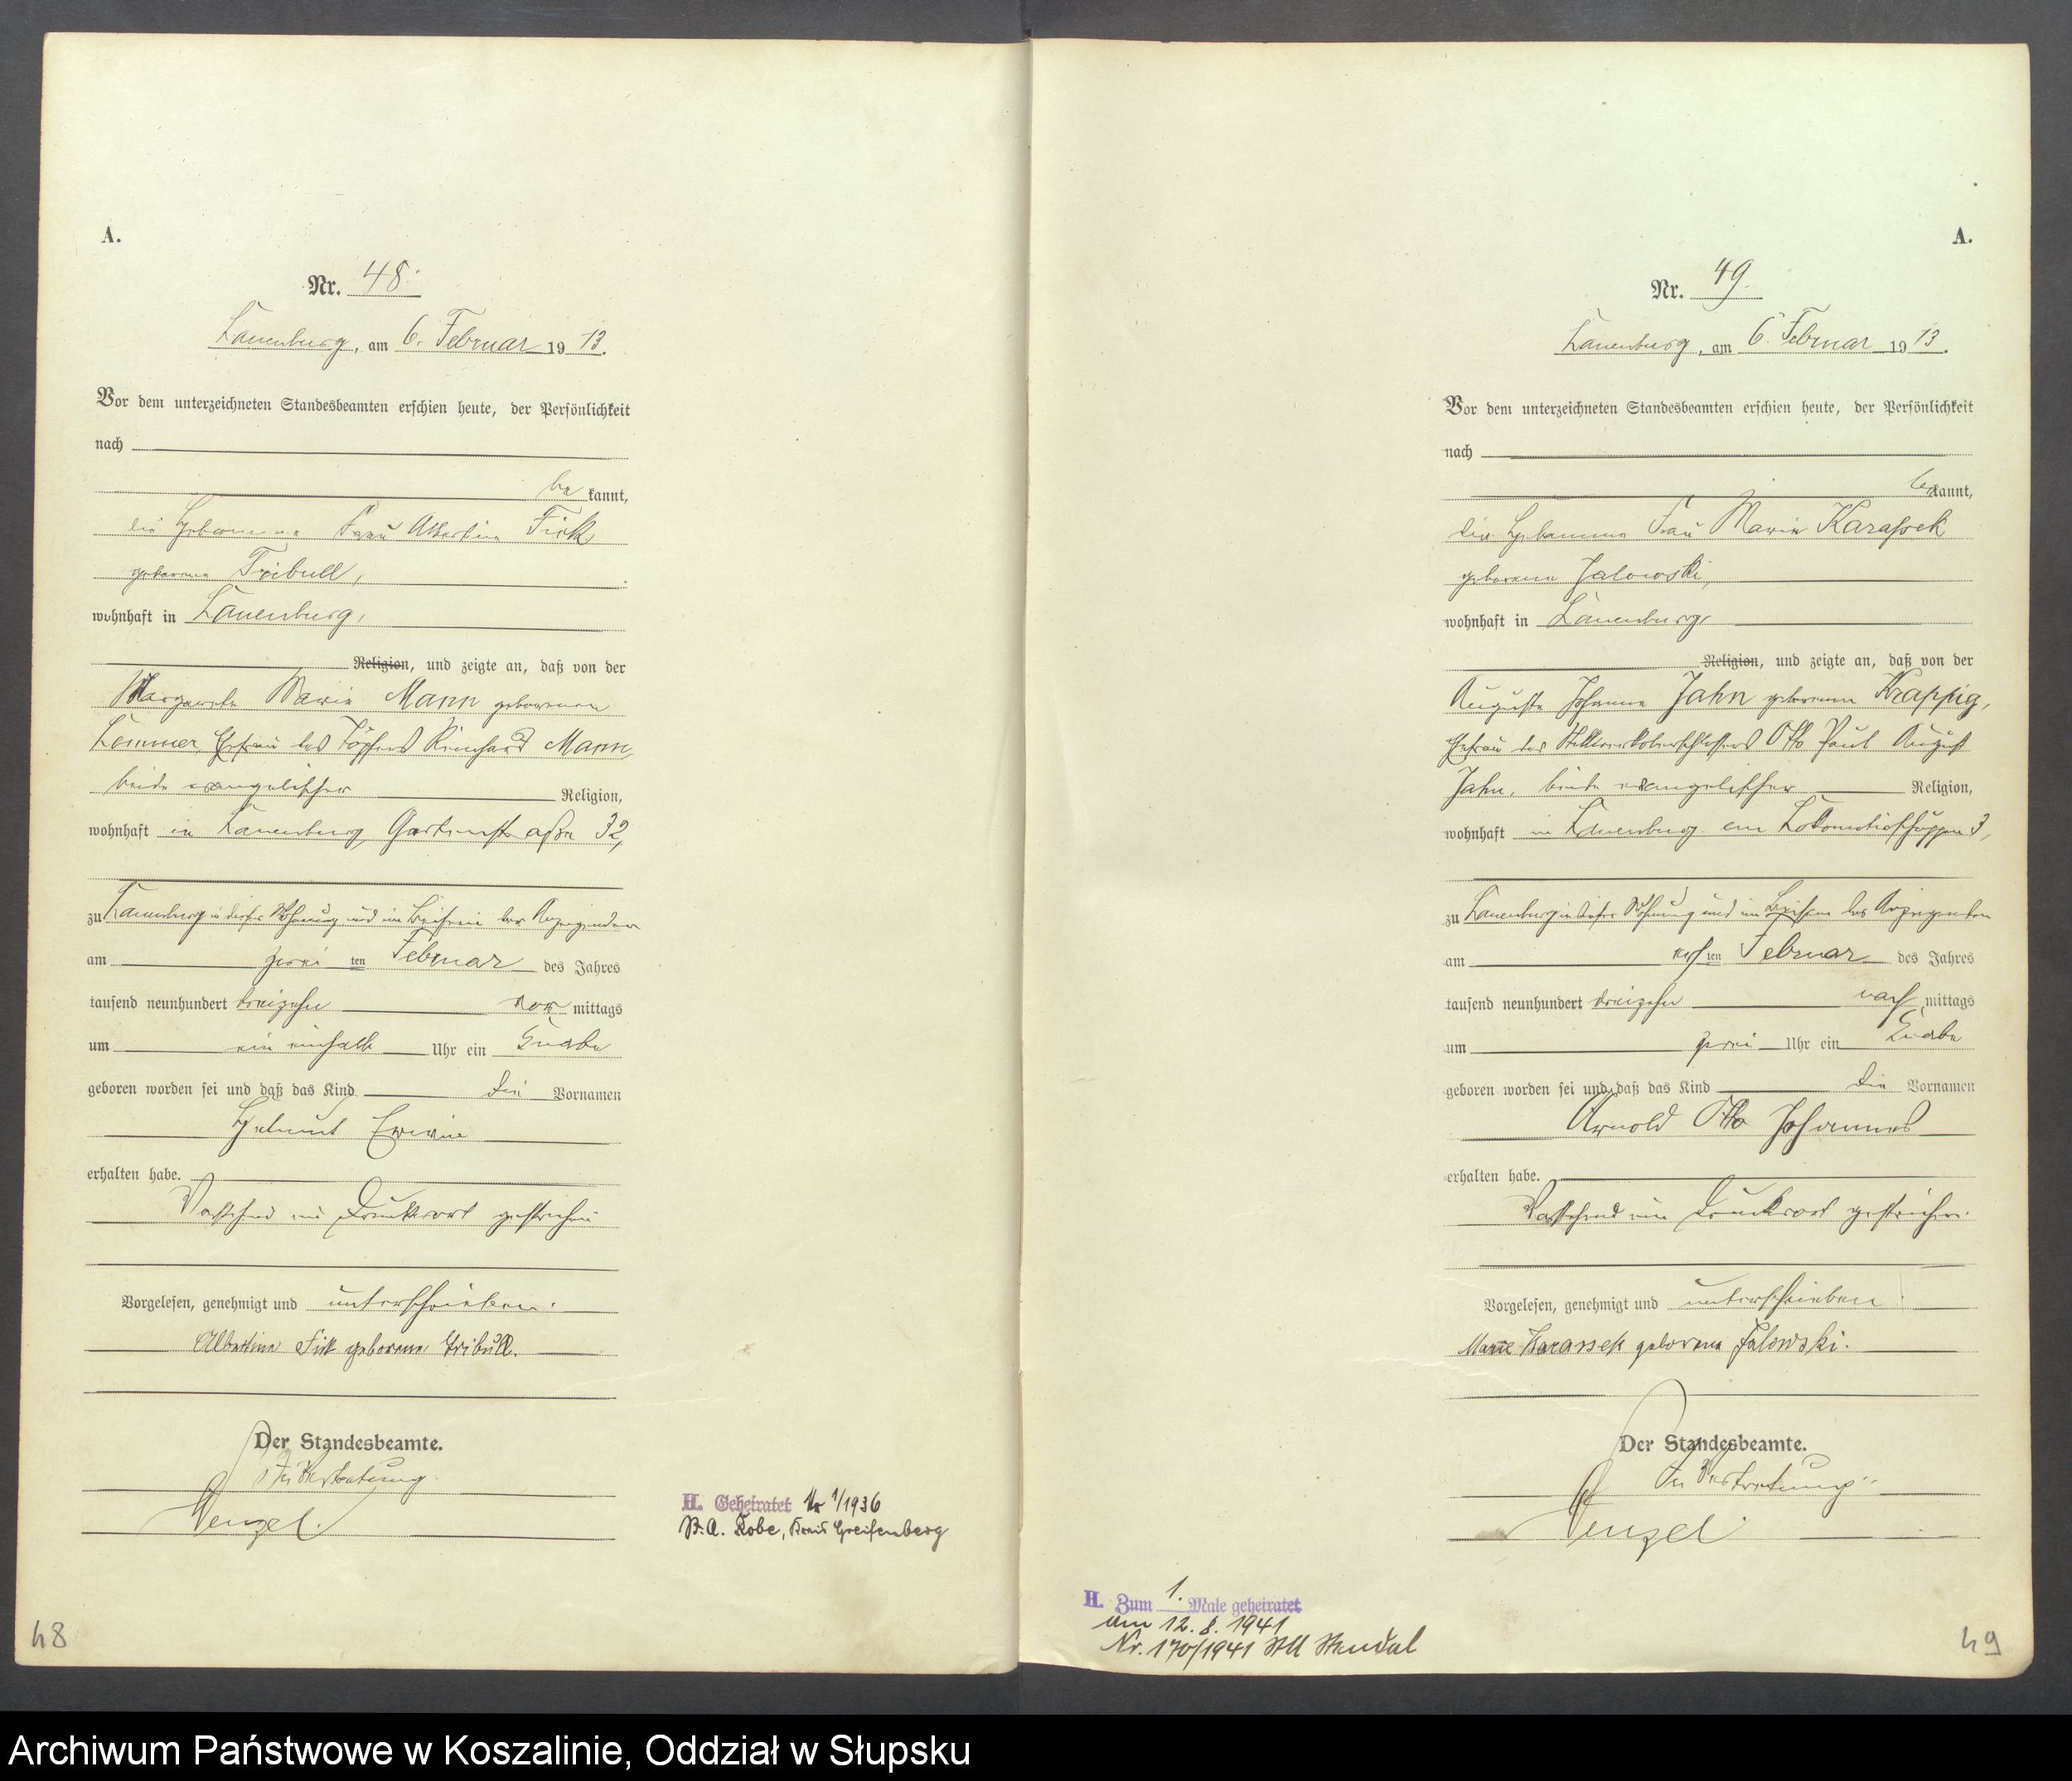 A.
Nr. 48.
Lauenburg, am 6. Februar 19 13.
Vor dem unterzeichneten Standesbeamten erschien heute, der Persönlichkeit
nach
be kannt,
die Hebamme Frau Albertine Fick
geborene Tribull,
wohnhaft in Lauenburg,
Religion, und zeigte an, daß von der
Margarete Marie Mann geborenen
Lemmer, Ehefrau des Töpfers Reinhard Mann,
beide evangelischer Religion,
wohnhaft in Lauenburg, Gartenstraße 32,
zu Lauenburg in dieser Wohnung und im Beisein der Anzeigenden
am zwei ten Februar des Jahres
tausend neunhundert dreizehn vor mittags
um ein einhalb Uhr ein Knabe
geboren worden sei und daß das Kind die Vornamen
Helmut Erwin
erhalten habe.
Vorstehend ein Druckwort gestrichen
Vorgelesen, genehmigt und unterschrieben.
Albertine Fick geborene Tribull.
Der Standesbeamte.
In Vertretung.
Wenzel.
H. Geheiratet Nr 1/1936
St. A. Robe, Kreis Greifenberg
48
A.
Nr. 49.
Lauenburg, am 6. Februar 19 13.
Vor dem unterzeichneten Standesbeamten erschien heute, der Persönlichkeit
nach
be kannt,
die Hebamme Frau Marie Karassek
geborene Jalowski,
wohnhaft in Lauenburg
Religion, und zeigte an, daß von der
Auguste Johanna Jahn geborenen Krappig,
Ehefrau des Otto Paul August
Jahn, beide evangelischer Religion,
wohnhaft in Lauenburg am Lokomotivschuppen 3,
zu Lauenburg in dieser Wohnung und im Beisein der Anzeigenden
am ers ten Februar des Jahres
tausend neunhundert dreizehn nach mittags
um zwei Uhr ein Knabe
geboren worden sei und daß das Kind die Vornamen
Arnold Otto Johannes
erhalten habe.
Vorstehend ein Druckwort gestrichen.
Vorgelesen, genehmigt und unterschrieben.
Marie Karassek geborene Jalowski.
Der Standesbeamte.
In Vertretung.
Wenzel.
H. Zum 1. Male geheiratet
am 12. 8. 1941
Nr. 170/1941 StA Stendal
49
Archiwum Państwowe w Koszalinie, Oddział w Słupsku